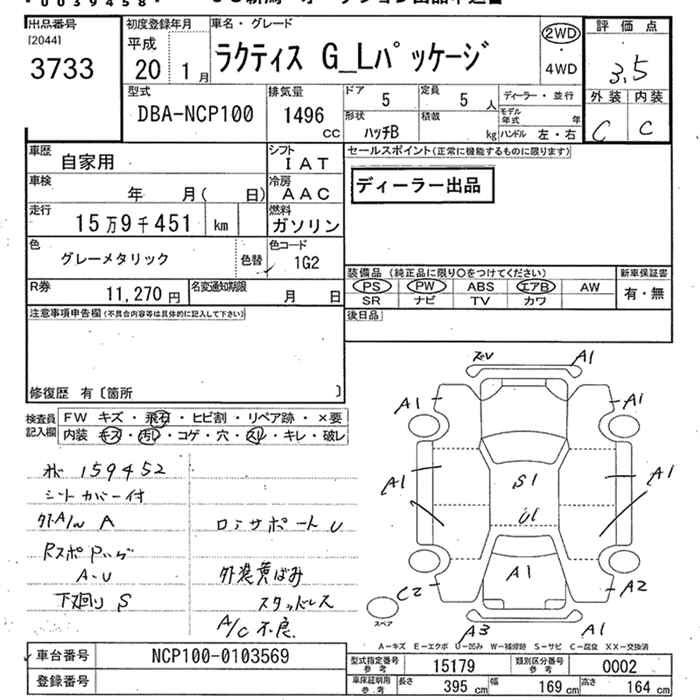 0039458
出品番号
[2044]
3733
初度登録年月
平成
20 1月
車名・グレード
ラクティス G_Lパッケージ
2WD
・
4WD
評価点
3.5
外装 内装
C C
型式
DBA-NCP100
排気量
1496
CC
ドア
5
定員
5 人
ディーラー・並行
形状
ハッチB
積載
kg
モデル年式
年
ハンドル 左・右
車歴
自家用
シフト
IAT
車検
年 月( 日)
冷房
AAC
走行
15万9千451 km
燃料
ガソリン
色
グレーメタリック
色替
色コード
1G2
R券
11,270 円
名変通知期限
月 日
セールスポイント(正常に機能するものに限ります)
ディーラー出品
装備品(純正品に限り○をつけてください)
PS PW ABS エアB AW
SR ナビ TV カワ
新車保証書
有・無
後日品
注意事項申告欄(不具合内容等は具体的に記入して下さい)
修復歴 有〔箇所 〕
検査員
記入欄
FW キズ・飛石・ヒビ割・リペア跡・×要
内装 キズ・汚れ・コゲ・穴・スレ・キレ・破レ
159452
シートカバー付
外A/W A
ロアサポート U
A・U
外装黄ばみ
下廻り S
スタッドレス
A/C 不良
A1
A1
A1
A1
S1
A1
U1
A1
C2
A2
スペア
A3
A1
A-キズ E-エクボ U-凹み W-補修跡 S-サビ C-腐食 XX-交換済
車台番号
NCP100-0103569
登録番号
型式指定番号
参考
15179
類別区分番号
参考
0002
車庫証明用
参考
長さ
395 cm
幅
169 cm
高さ
164 cm